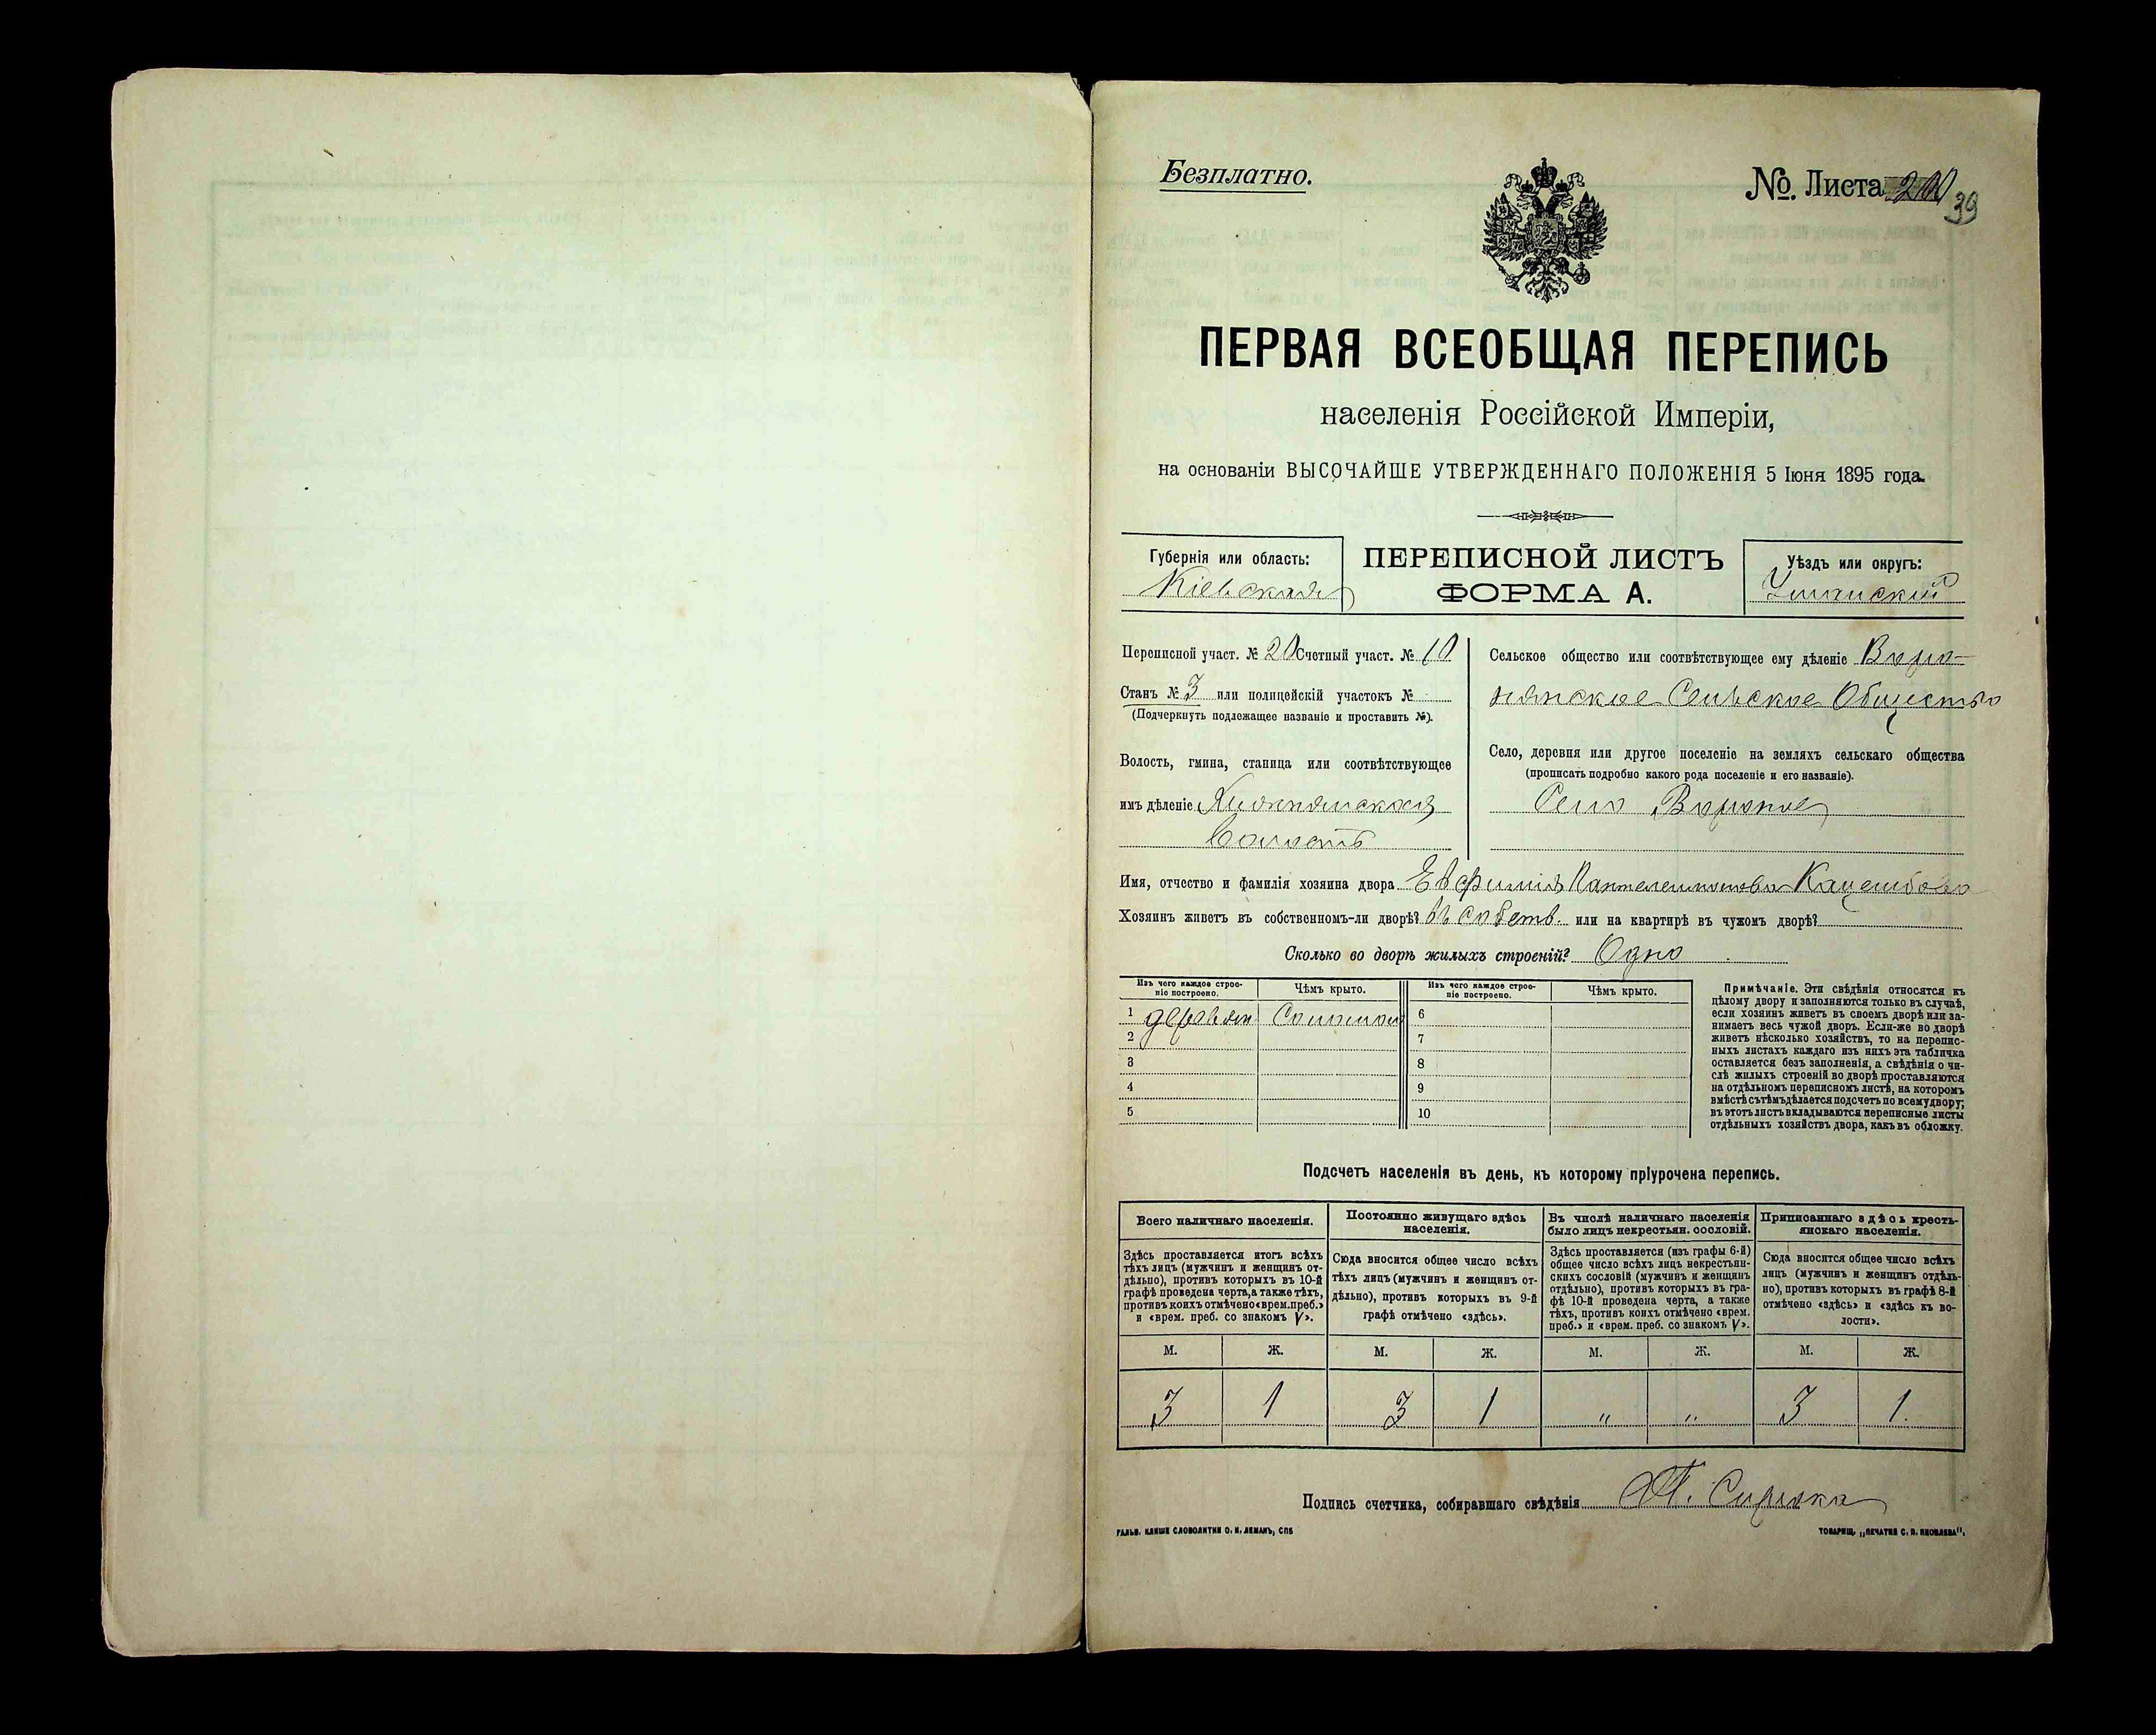 Безплатно.
№. Листа 200
39
ПЕРВАЯ ВСЕОБЩАЯ ПЕРЕПИСЬ
населенія Россійской Имперіи,
на основаніи ВЫСОЧАЙШЕ УТВЕРЖДЕННАГО ПОЛОЖЕНІЯ 5 Іюня 1895 года.
Губернія или область:
Кіевская
ПЕРЕПИСНОЙ ЛИСТЪ
ФОРМА А.
Уѣздъ или округъ:
Уманский
Переписной участ. № 20 Счетный участ. № 10
Станъ № 3 или полицейскій участокъ №
(Подчеркнуть подлежащее названіе и проставить №).
Волость, гмина, станица или соотвѣтствующее
имъ дѣленіе
Волость
Сельское общество или соотвѣтствующее ему дѣленіе Воро-
нянское Сельское Общество
Село, деревня или другое поселеніе на земляхъ сельскаго общества
(прописать подробно какого рода поселеніе и его названіе).
Село Вороное
Имя, отчество и фамилія хозяина двора Евфимія Пантелеимонова
Хозяинъ живетъ въ собственномъ-ли дворѣ? въ собств. или на квартирѣ въ чужомъ дворѣ?
Сколько во дворѣ жилыхъ строеній? Одно
Изъ чего каждое строе-
ніе построено.
Чѣмъ крыто.
Изъ чего каждое строе-
ніе построено.
Чѣмъ крыто.
1 деревян Соломой 6
2 7
3 8
4 9
5 10
Примѣчаніе. Эти свѣдѣнія относятся къ
цѣлому двору и заполняются только въ случаѣ,
если хозяинъ живетъ въ своемъ дворѣ или за-
нимаетъ весь чужой дворъ. Если-же во дворѣ
живетъ нѣсколько хозяйствъ, то на перепис-
ныхъ листахъ каждаго изъ нихъ эта табличка
оставляется безъ заполненія, а свѣдѣнія о чи-
слѣ жилыхъ строеній во дворѣ проставляются
на отдѣльномъ переписномъ листѣ, на которомъ
вмѣстѣ съ тѣмъ дѣлается подсчетъ по всему двору;
въ этотъ листъ вкладываются переписные листы
отдѣльныхъ хозяйствъ двора, какъ въ обложку.
Подсчетъ населенія въ день, къ которому пріурочена перепись.
Всего наличнаго населенія.
Здѣсь проставляется итогъ всѣхъ
тѣхъ лицъ (мужчинъ и женщинъ от-
дѣльно), противъ которыхъ въ 10-й
графѣ проведена черта, а также тѣхъ,
противъ коихъ отмѣчено «врем. преб.»
и «врем. преб. со знакомъ V».
Постоянно живущаго здѣсь
населенія.
Сюда вносится общее число всѣхъ
тѣхъ лицъ (мужчинъ и женщинъ от-
дѣльно), противъ которыхъ въ 9-й
графѣ отмѣчено «здѣсь».
Въ числѣ наличнаго населенія
было лицъ некрестьян. сословій.
Здѣсь проставляется (изъ графы 6-й)
общее число всѣхъ лицъ некрестьян-
скихъ сословій (мужчинъ и женщинъ
отдѣльно), противъ которыхъ въ гра-
фѣ 10-й проведена черта, а также
тѣхъ, противъ коихъ отмѣчено «врем.
преб.» и «врем. преб. со знакомъ V».
Приписаннаго здѣсь кресть-
янскаго населенія.
Сюда вносится общее число всѣхъ
лицъ (мужчинъ и женщинъ отдѣль-
но), противъ которыхъ въ графѣ 8-й
отмѣчено «здѣсь» и «здѣсь къ во-
лости».
М. Ж. М. Ж. М. Ж. М. Ж.
3 1 3 1 " " 3 1.
Подпись счетчика, собиравшаго свѣдѣнія
ГАЛЬВ. КЛИШЕ СЛОВОЛИТНИ О. И. ЛЕМАНЪ, СПБ
ТОВАРИЩ. „ПЕЧАТНЯ С. П. ЯКОВЛЕВА".